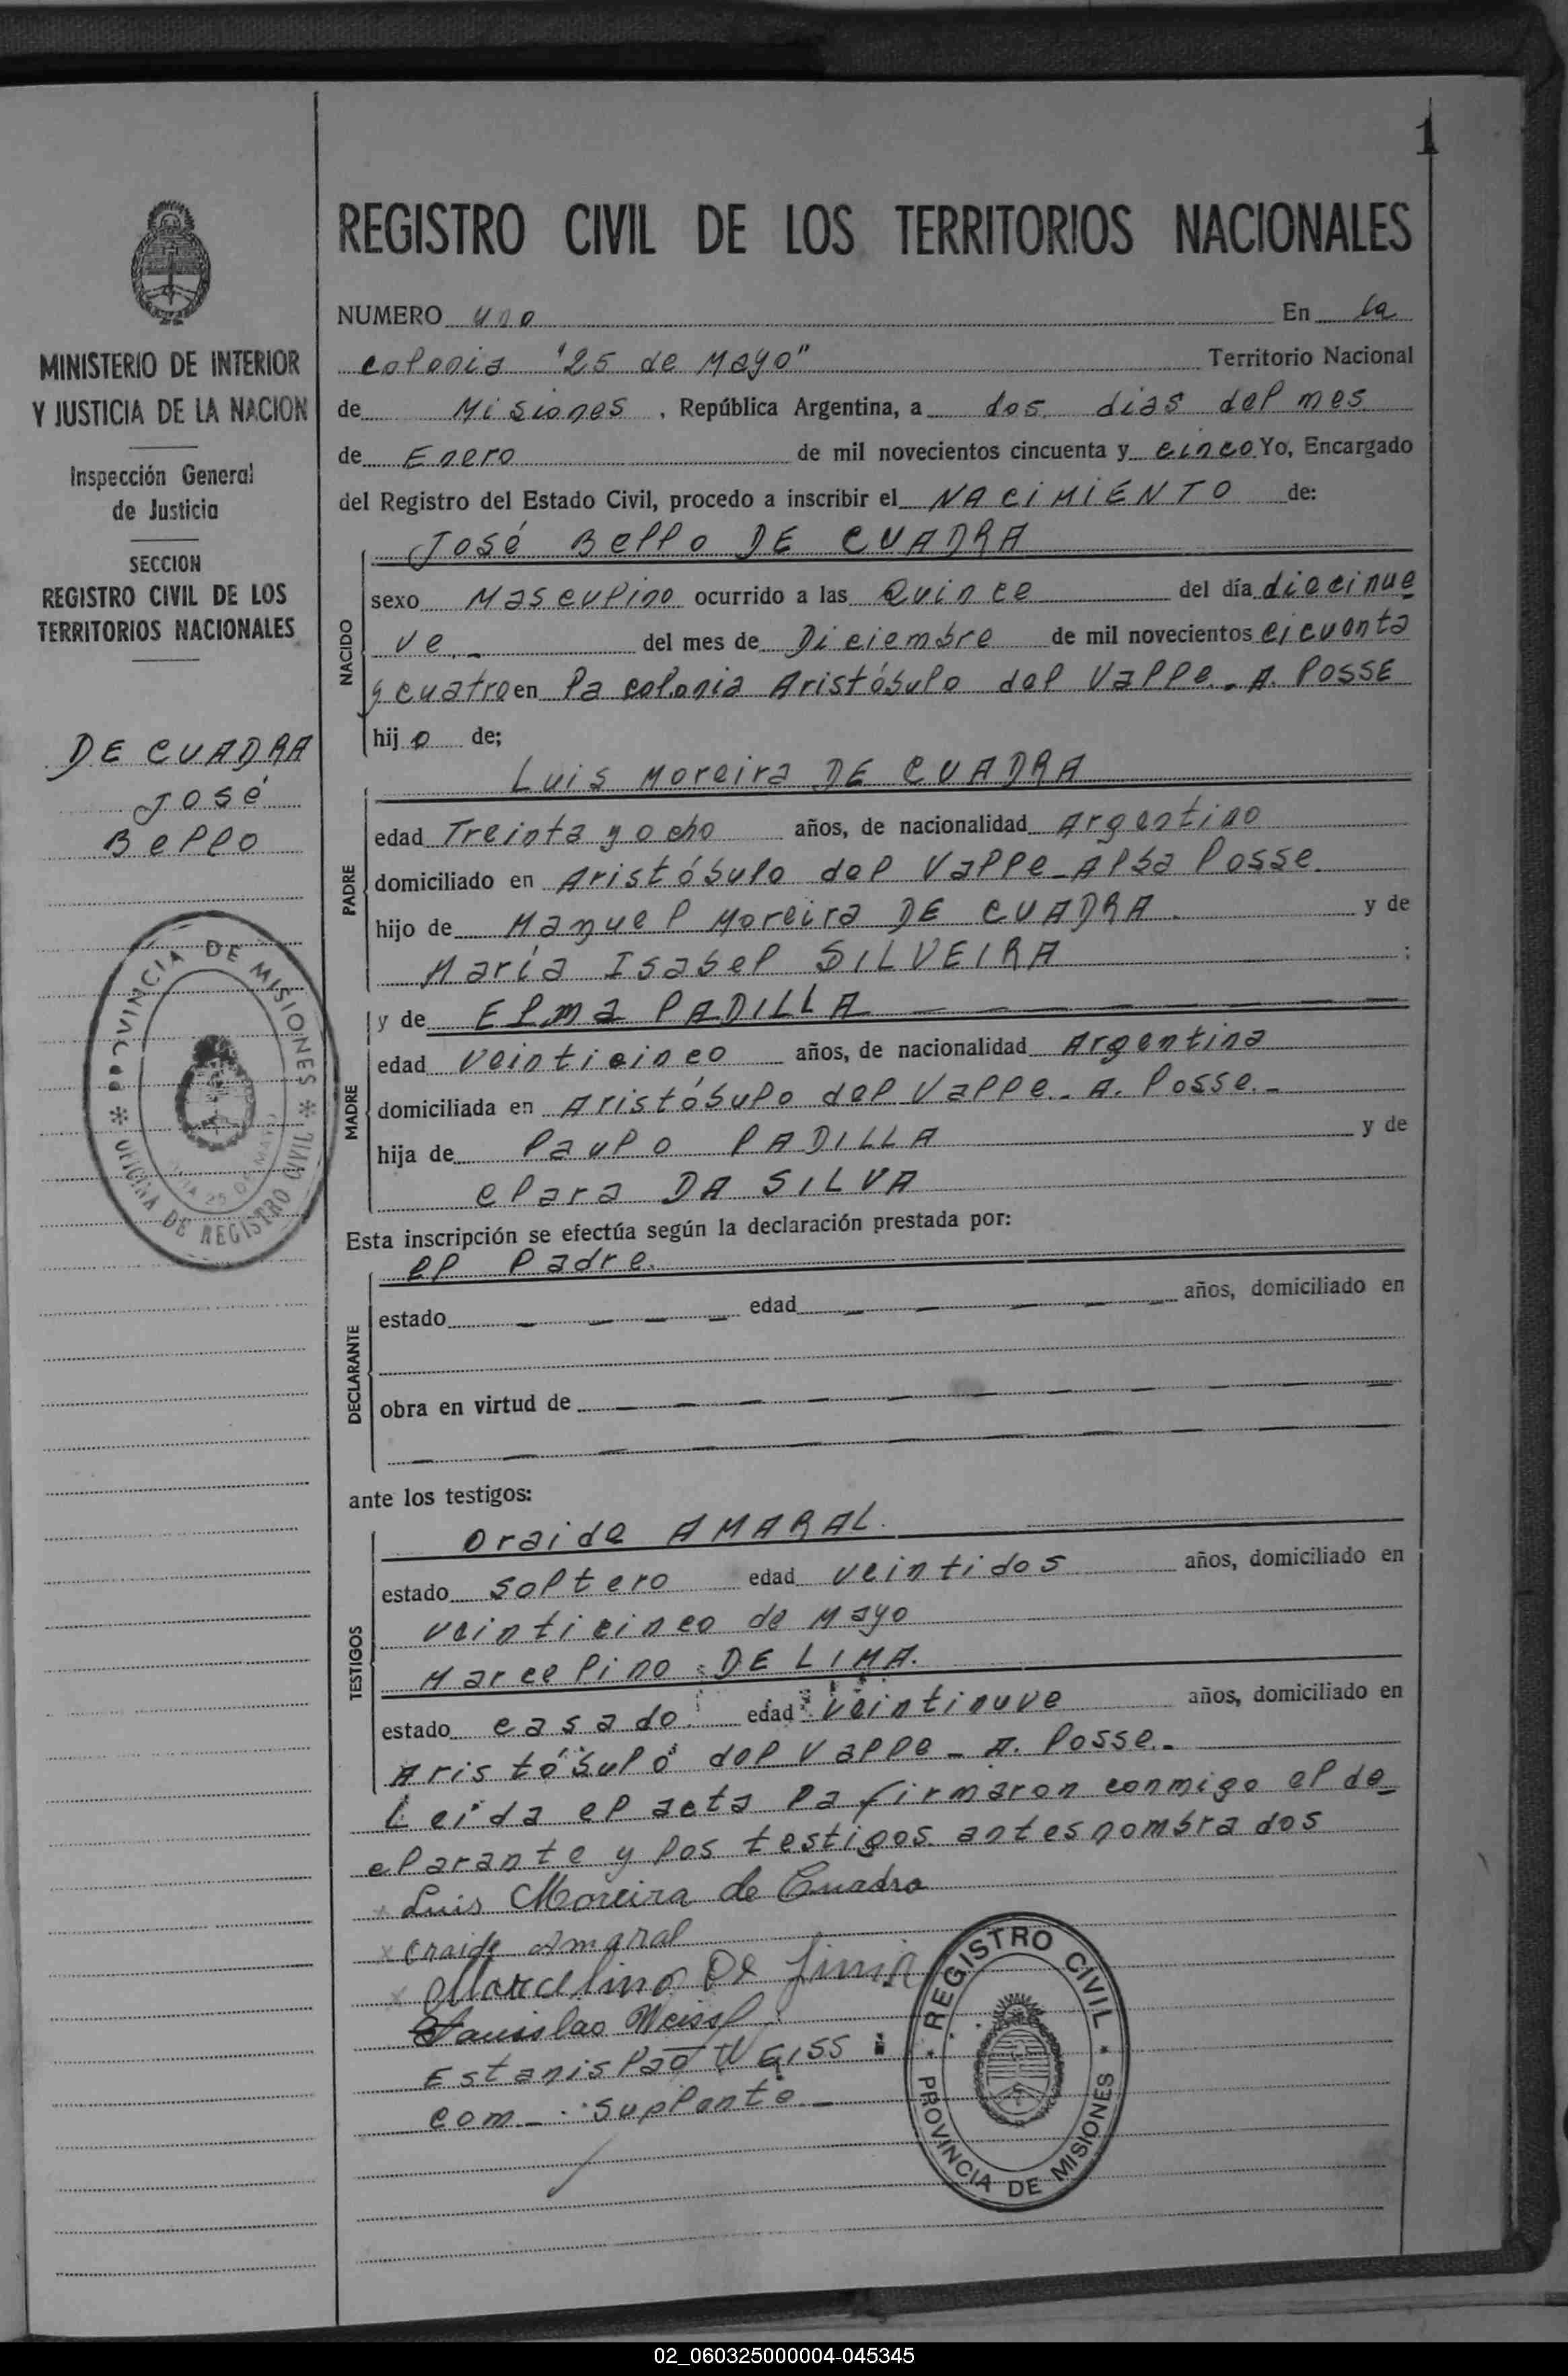 1
REGISTRO CIVIL DE LOS TERRITORIOS NACIONALES
MINISTERIO DE INTERIOR
Y JUSTICIA DE LA NACION
Inspección General
de Justicia
SECCION
REGISTRO CIVIL DE LOS
TERRITORIOS NACIONALES
DE CUADRA
José
Bello
PROVINCIA DE MISIONES
OFICINA DE REGISTRO CIVIL
NUMERO uno En la
colonia "25 de Mayo" Territorio Nacional
de Misiones, República Argentina, a dos dias del mes
de Enero de mil novecientos cincuenta y cinco Yo, Encargado
del Registro del Estado Civil, procedo a inscribir el NACIMIENTO de:
José Bello DE CUADRA
NACIDO
sexo Masculino ocurrido a las Quince del día diecinue
ve.- del mes de Diciembre de mil novecientos cicuenta
y cuatro en la colonia Aristóbulo del Valle - A. Posse
hijo de;
Luis Moreira DE CUADRA
PADRE
edad Treinta y ocho años, de nacionalidad Argentino
domiciliado en Aristóbulo del Valle - Alba Posse.
hijo de Manuel Moreira DE CUADRA. y de
María Isabel SILVEIRA ;
y de Elma PADILLA
MADRE
edad veinticinco años, de nacionalidad Argentina
domiciliada en Aristóbulo del Valle - A. Posse.-
hija de Paulo PADILLA y de
Clara DA SILVA
Esta inscripción se efectúa según la declaración prestada por:
el Padre.
DECLARANTE
estado edad años, domiciliado en
obra en virtud de
ante los testigos:
Oraide AMARAL.
TESTIGOS
estado soltero edad veintidos años, domiciliado en
veinticinco de Mayo
Marcelino DE LIMA.
estado casado edad veintinuve años, domiciliado en
Aristóbulo del Valle - A. Posse.-
Leída el acta la firmaron conmigo el de-
clarante y los testigos antes nombrados
x Luis Moreira de Cuadra
x Oraide Amaral
x Marcelino De Lima
Estanislao Weiss
Estanislao WEISS
Com. suplente
REGISTRO CIVIL
PROVINCIA DE MISIONES
02_060325000004-045345